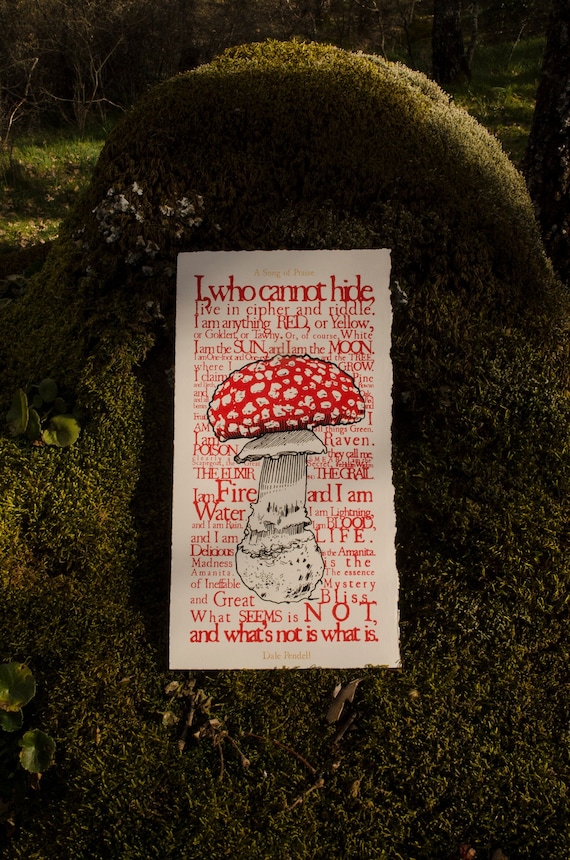 A Song of Praise
I, who cannot hide,
live in cipher and riddle.
I am anything RED, or Yellow,
or Golden, or Tawny. Or, of course, White
I am the SUN, and I am the MOON.
I am One-foot and One-eye and the TREE,
where I GROW.
I claim Pine
and
and
and I
of all things Green.
I am Raven.
POISON they call me
clearly
Scapegoat, the Great Secret,
THE ELIXIR THE GRAIL
I am Fire and I am
Water I am Lightning,
and I am Rain. I am BLOOD,
and I am LIFE.
Delicious is the Amanita.
Madness is the
Amanita. The essence
of Ineffable Mystery
and Great Bliss.
What SEEMS is NOT,
and what's not is what is.
Dale Pendell